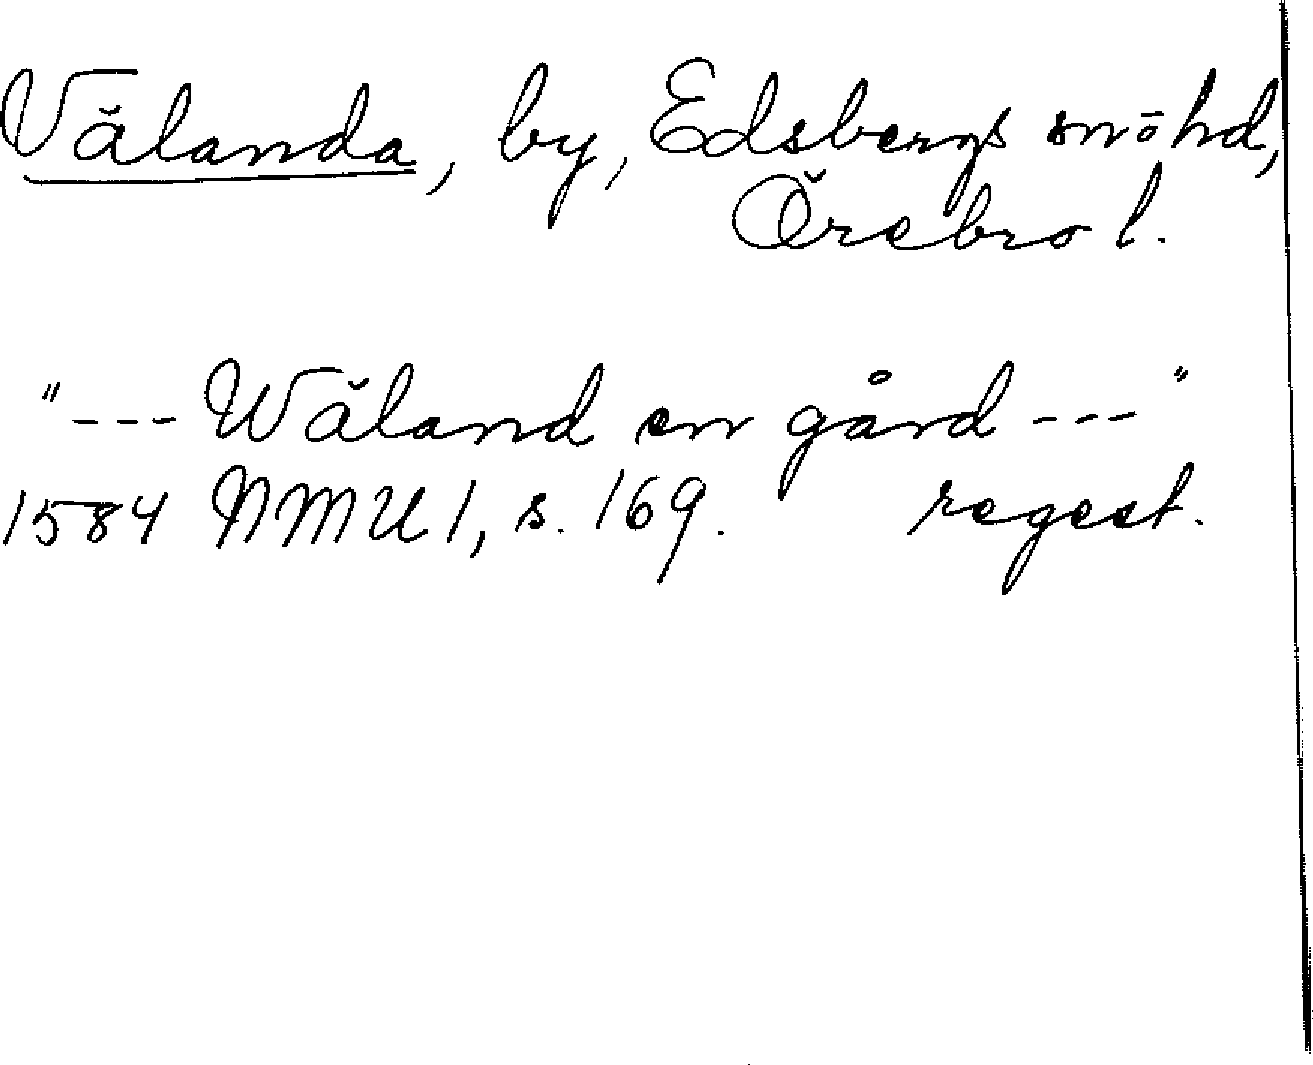 Välanda, by, Edsbergs sn o hd,
Örebro l.
"--- Wäland en gård ---"
1584 NMU 1, s. 169. regest.